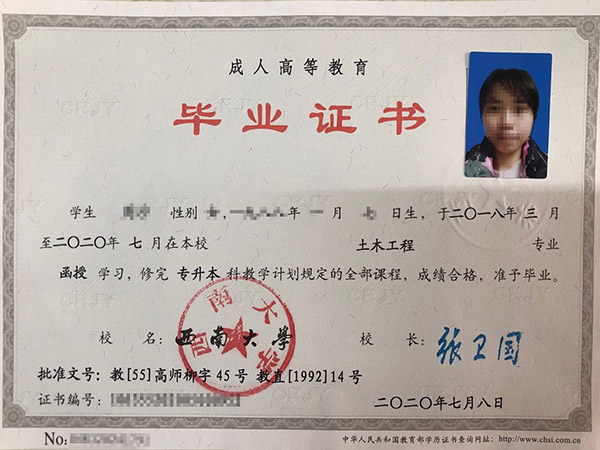 成人高等教育
毕业证书
学生 性别 , 一九八八年 一 月 七 日生，于二〇一八年 三 月
至二〇二〇年 七 月在本校 土木工程 专业
函授 学习，修完 专升本 科教学计划规定的全部课程，成绩合格，准予毕业。
校 名：西南大學 校 长：张卫国
西南大学
批准文号：教[55]高师柳字 45 号 教直[1992]14 号
证书编号：
二〇二〇年七月八日
No:
中华人民共和国教育部学历证书查询网址：http://www.chsi.com.cn